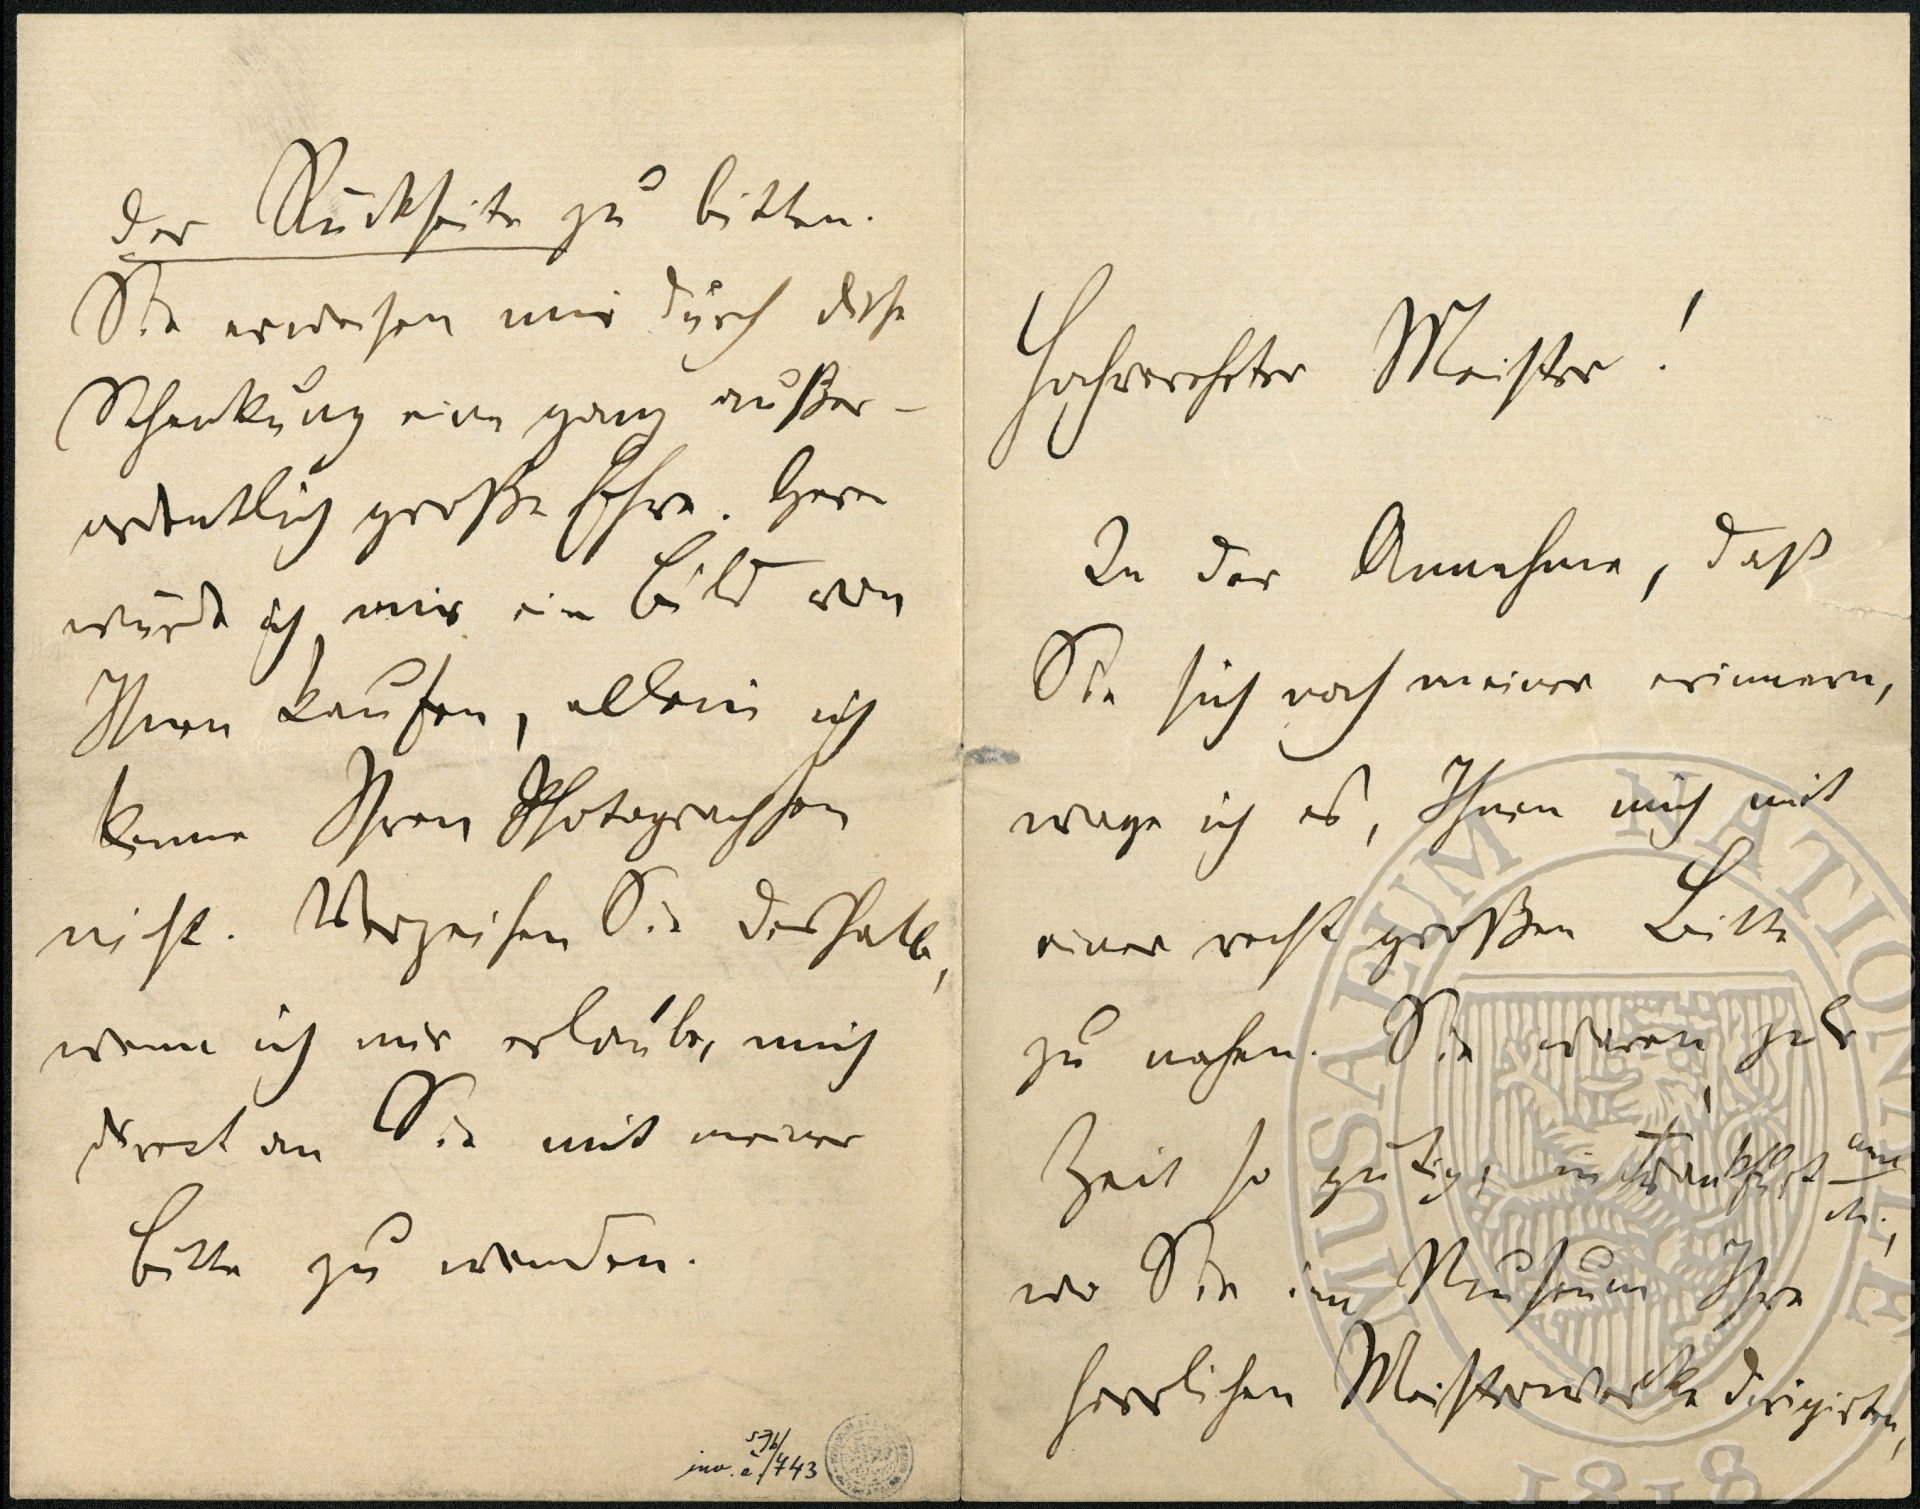 der Rückseite zu bitten.
Sie erweisen mir durch diese
Schenkung eine ganz außer-
ordentlich große Ehre. Gern
würde ich mir ein Bild von
Ihnen kaufen, allein ich
kenne Ihren Photographen
nicht. Verzeihen Sie deshalb,
wenn ich mir erlaube, mich
direct an Sie mit meiner
Bitte zu wenden.
inv. č. 743
Hochverehrter Meister!
In der Annahme, daß
Sie sich noch meiner erinnern,
wage ich es, Ihnen mich mit
einer recht großen Bitte
zu nahen. Sie waren, zur
Zeit so gütig, in Frankfurt am
M.,
wo Sie im Museum Ihre
herrlichen Meisterwerke dirigirten,
MUSAEUM NATIONALE
1818